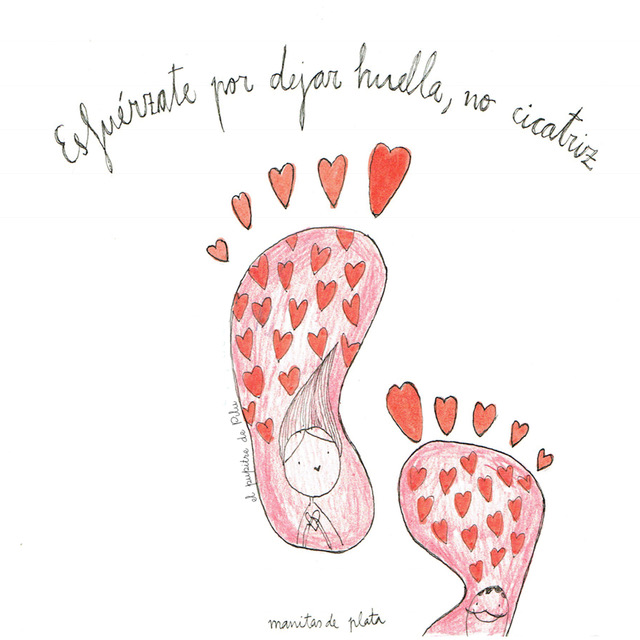 Esfuérzate por dejar huella, no cicatriz
el pupitre de Pilu
manitas de plata